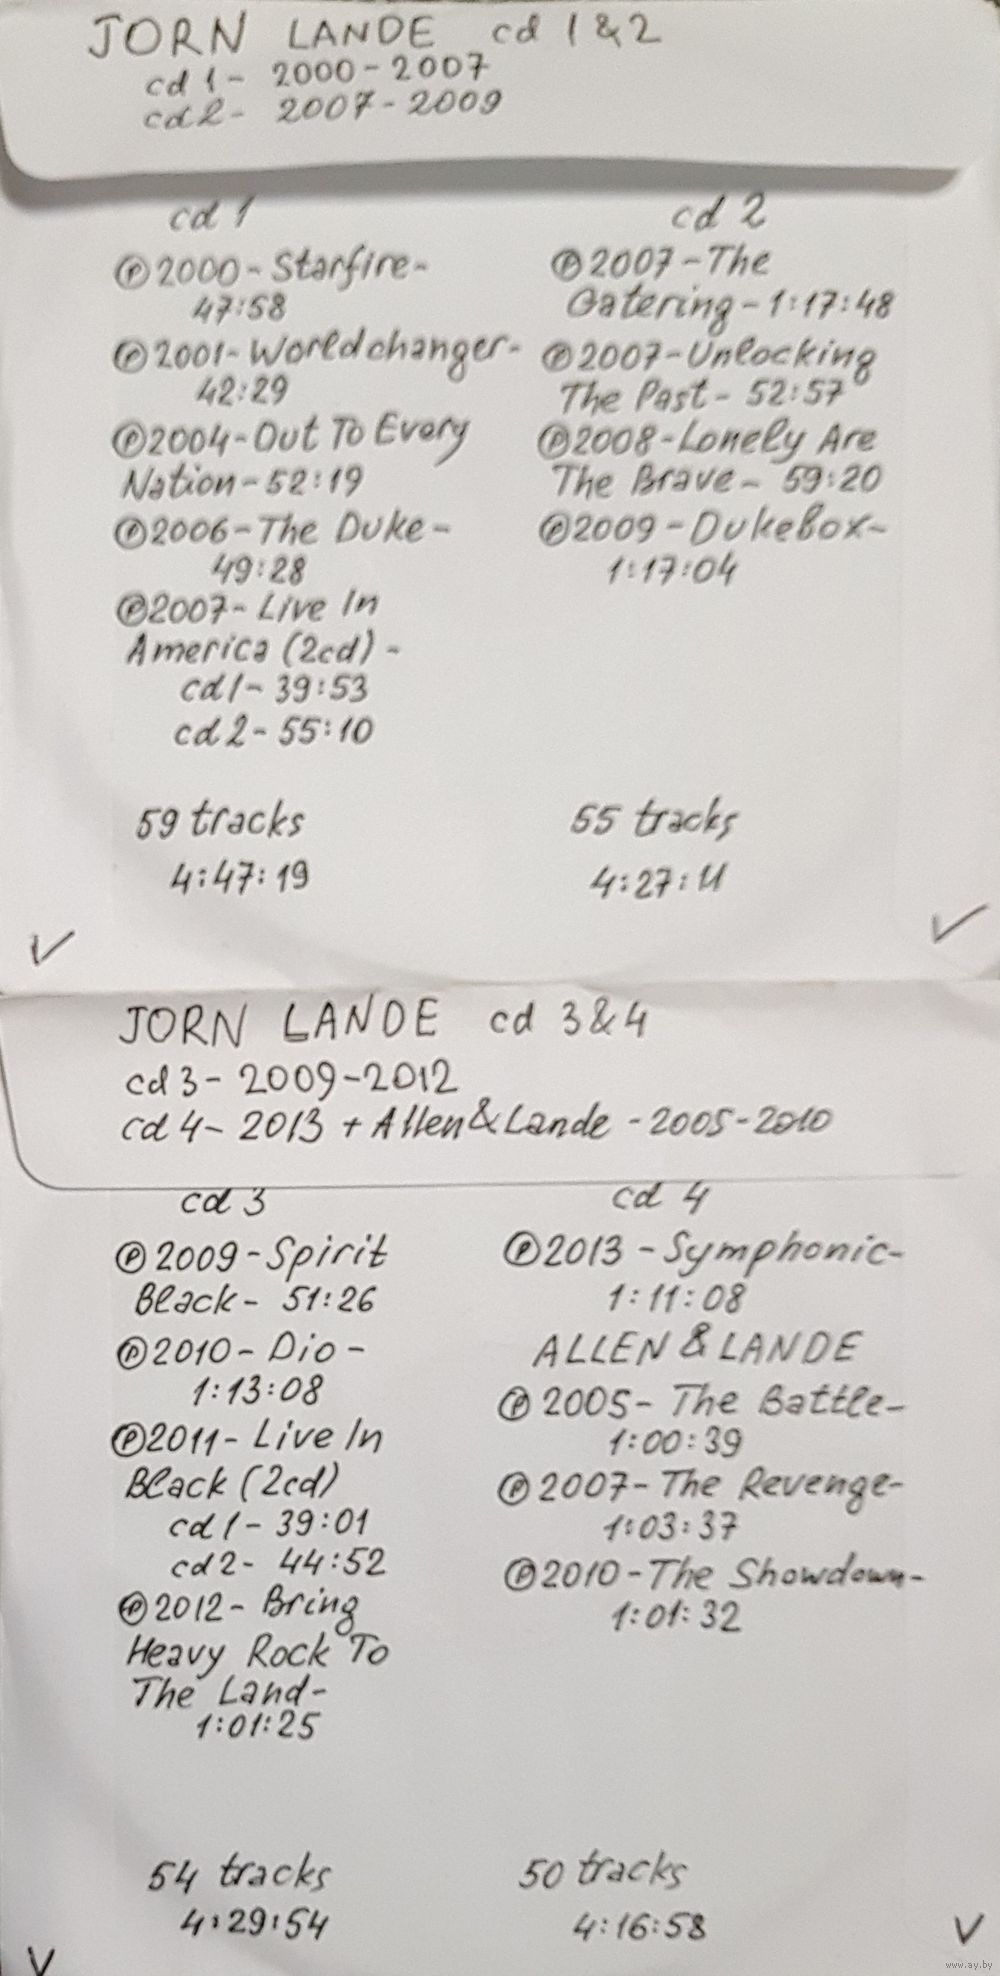 JORN LANDE cd 1 & 2
cd 1 - 2000 - 2007
cd 2 - 2007 - 2009
cd 1
Ⓟ 2000 - Starfire -
47:58
Ⓟ 2001 - Worldchanger -
42:29
Ⓟ 2004 - Out To Every
Nation - 52:19
Ⓟ 2006 - The Duke -
49:28
Ⓟ 2007 - Live In
America (2cd) -
cd 1 - 39:53
cd 2 - 55:10
59 tracks
4:47:19
cd 2
Ⓟ 2007 - The
Gatering - 1:17:48
Ⓟ 2007 - Unlocking
The Past - 52:57
Ⓟ 2008 - Lonely Are
The Brave - 59:20
Ⓟ 2009 - Dukebox -
1:17:04
55 tracks
4:27:11
JORN LANDE cd 3 & 4
cd 3 - 2009 - 2012
cd 4 - 2013 + Allen & Lande - 2005 - 2010
cd 3
Ⓟ 2009 - Spirit
Black - 51:26
Ⓟ 2010 - Dio -
1:13:08
Ⓟ 2011 - Live In
Black (2cd)
cd 1 - 39:01
cd 2 - 44:52
Ⓟ 2012 - Bring
Heavy Rock To
The Land -
1:01:25
54 tracks
4:29:54
cd 4
Ⓟ 2013 - Symphonic -
1:11:08
ALLEN & LANDE
Ⓟ 2005 - The Battle -
1:00:39
Ⓟ 2007 - The Revenge -
1:03:37
Ⓟ 2010 - The Showdown -
1:01:32
50 tracks
4:16:58
www.ay.by